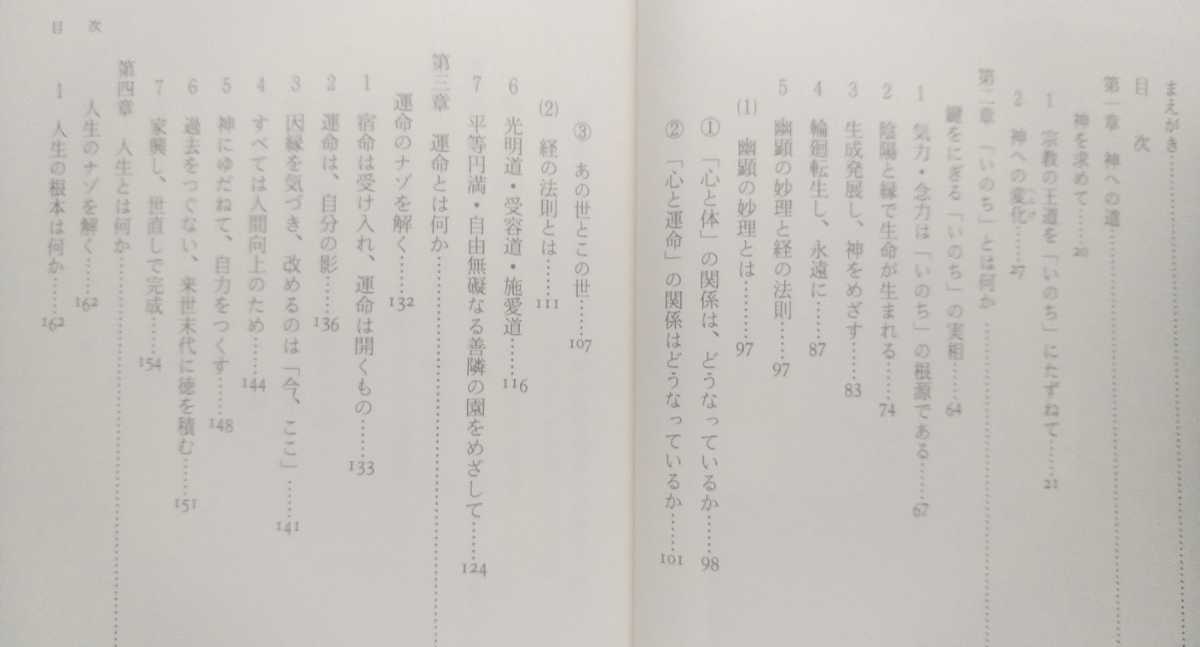 まえがき……………………
目次
第一章 神への道……………………
神を求めて……20
1 宗教の王道を「いのち」にたずねて……21
2 神への変化……27
第二章 「いのち」とは何か……………………
鍵をにぎる「いのち」の実相……64
1 気力・念力は「いのち」の根源である……67
2 陰陽と縁で生命が生まれる……74
3 生成発展し、神をめざす……83
4 輪廻転生し、永遠に……87
5 幽顕の妙理と経の法則……97
(1) 幽顕の妙理とは……97
① 「心と体」の関係は、どうなっているか……98
② 「心と運命」の関係はどうなっているか……101
③ あの世とこの世……107
(2) 経の法則とは……111
6 光明道・受容道・施愛道……116
7 平等円満・自由無礙なる善隣の園をめざして……124
第三章 運命とは何か……………………
運命のナゾを解く……132
1 宿命は受け入れ、運命は開くもの……133
2 運命は、自分の影……136
3 因縁を気づき、改めるのは「今、ここ」……141
4 すべては人間向上のため……144
5 神にゆだねて、自力をつくす……148
6 過去をつぐない、来世末代に徳を積む……151
7 家興し、世直しで完成……154
第四章 人生とは何か……………………
人生のナゾを解く……162
1 人生の根本は何か……162
目次